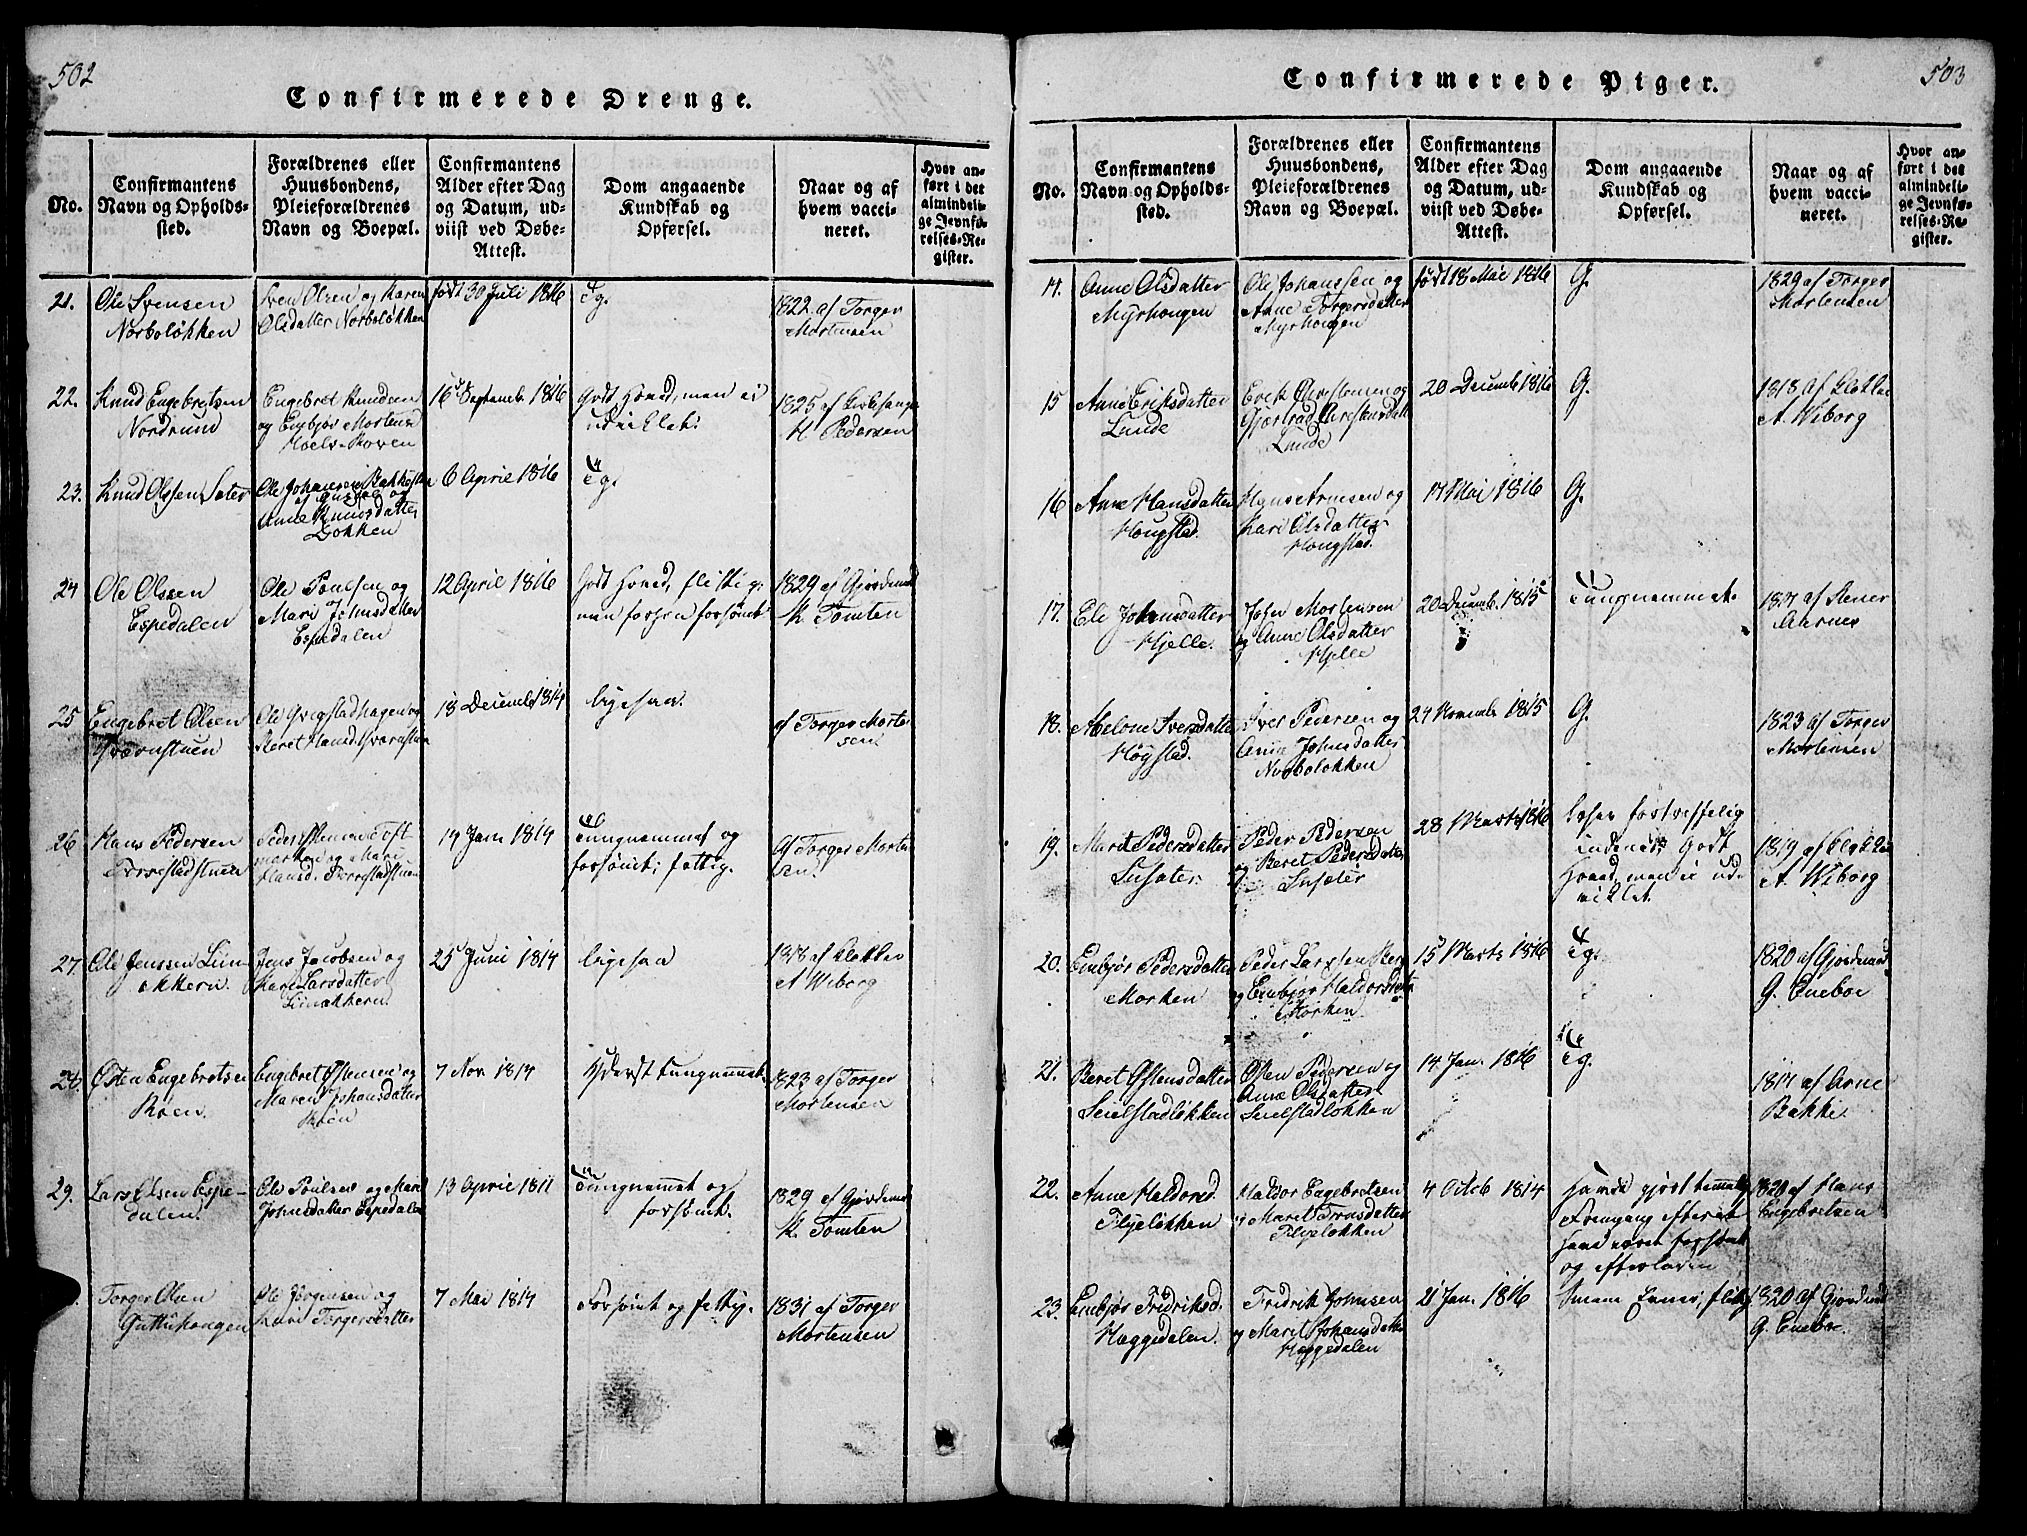 502
Confirmerede Drenge.
No.
Confirmantens
Navn og Opholds-
sted.
Forældrenes eller
Huusbondens,
Pleieforældrenes
Navn og Boepæl.
Confirmantens
Alder efter Dag
og Datum, ud-
viist ved Døbe-
Attest.
Dom angaaende
Kundskab og
Opførsel.
Naar og af
hvem vacci-
neret.
Hvor an-
ført i det
almindeli-
ge Jevnfø-
relses-Re-
gister.
21.
Ole Svensen
Norboløkken
Sven Olsen og Karen
Olsdatter Norboløkken
født 30 Juli 1816
Tg.
1822 af Torger
Mortensen
22.
Knud Engebretsen
Nordrund
Engebret Knudsen
og Engbjør Mortensd
16 Septemb 1816
godt Hoved, men ei
udviklet.
1825 af
H. Pedersen
23.
Knud Olssen
Ole Johansen
Anne Knudsdatter
Løkken
6 April 1816
Tg.
24
Ole Olssen
Espedalen
Ole Poulsen og
Mari Johnsdatter
Espedalen
12 April 1816
godt Hoved, flittig;
men forsømt
1829 af Gjordemd
K. Tomten
25
Engebret Olsen
Qværnstuen
Ole Qvigstadhagen og
Beret Hansd. Qværnstuen
18 Decemb 1814
ligesaa.
af Torger Morten
sen.
26
Hans Pedersen
Forrestadstuen
Peder
og Mari
Hansd. Forrestadstuen
19 Jan 1814
Tungnemmet og
forsømt; fattig.
af Torger Morten
sen.
27
Ole Jenssen Liin-
Jens Jacobsen og
Kari Larsdatter
25 Juni 1814
ligesaa
1818 af Klokker
A Wiborg
28
Østen Engebretsen
Røen.
Engebret Østensen og
Maren Johansdatter
Røen
7 Nov 1814
Yderst tungnemmet.
1823 af Torger
Mortensen
29.
Lars Olsen Espe-
dalen.
Ole Poulsen og Mari
Johnsdatter Espedalen
13 April 1811
Tungnemmet og
forsømt.
1829 af Gjordemd
K. Tomten
Torger Olsen
Guttuhougen
Ole Jørgensen og
Kari Torgersdatter
7 Mai 1814
Forsømt og fattig.
1831 af Torger
Mortensen
503
Confirmerede Piger.
No.
Confirmantens
Navn og Opholds-
sted.
Forældrenes eller
Huusbondens,
Pleieforældrenes
Navn og Boepæl.
Confirmantens
Alder efter Dag
og Datum, ud-
viist ved Døbe-
Attest.
Dom angaaende
Kundskab og
Opførsel.
Naar og af
hvem vacci-
neret.
Hvor an-
ført i det
almindeli-
ge Jevnfø-
relses-Re-
gister.
14.
Anne Olsdatter
Myrhougen
Ole Johanssen og
Anne Torgersdatter
Myrhougen
født 18 Mai 1816
G.
1829 af Torger
Mortensen
15
Anne Eriksdatter
Lunde
Erik Christensen og
Gjertrud Christensdatt
Lunde
20 Decemb 1816
G.
1818 af Klokker
A. Wiborg
16
Anne Hansdatter
Hougstad.
Hans Arnesen og
Kari Olsdatter
Hougstad.
17 Mai 1816
G.
17.
Eli Johnsdatter
Hjelle.
John Mortensen
og Anne Olsdatter
Hjelle
20 Decemb. 1815
Tungnemmet.
1817 af
18.
Abelone Iversdatter
Høystad.
Iver Pedersen og
Anne Johnsdatter
Norboløkken
24 Novemb 1815
G.
1823 af Torger
Mortensen
19.
Marit Pedersdatter
Lusæter
Peder Pedersen
og Beret Pedersdatter
Lusæter
28 Marts 1816
læser fortreffelig
indenad; godt
Hoved, men ei ud-
viklet.
1819 af Klokker
A. Wiborg
20.
Embjør Pedersdatter
Morken
Peder Larsten
og Embjør Haldorsdatt
Morken
15 Marts 1816
Tg.
1820 af Gjordemd
G. Eneboe
21.
Beret Østensdatter
Sielstadløkken
Østen Pedersen og
Anne Olsdatter
Sielstadløkken
14 Jan. 1816
Tg.
1817 af Arne
Bakke
22.
Anne Haldorsd.
Flyeløkken
Haldor Engebretsen
og Marit Iversdatter
Flyeløkken
4 Octob 1814
Havde gjort temmelig
Fremgang
været forsømt
og efterladen
1820 af Hans
Engebretsen
23.
Embjør Fridriksd.
Heggedalen.
Fridrik Johnsen
og Marit Johansdatter
Heggedalen
21 Jan. 1816
Smaae Evner, flittig
1820 af Gjordemd
G. Eneboe.